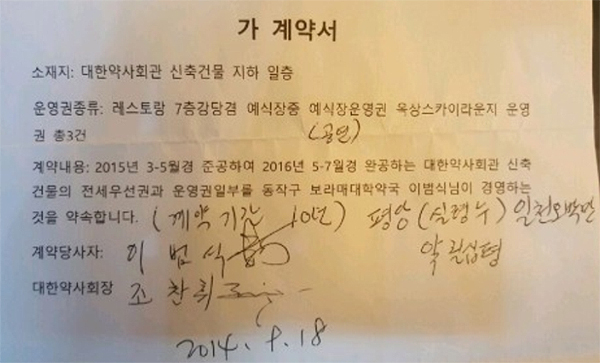 가 계약서
소재지: 대한약사회관 신축건물 지하 일층
운영권종류: 레스토랑 7층강당겸 예식장중 예식장운영권 옥상스카이라운지 운영
권 총3건
(공연)
계약내용: 2015년 3-5월경 준공하여 2016년 5-7월경 완공하는 대한약사회관 신축
건물의 전세우선권과 운영권일부를 동작구 보라매대학약국 이범식님이 경영하는
것을 약속합니다. (계약기간 10년) 평당 (실평수) 일천오백만
약 칠십평
계약당사자: 이 범 식
대한약사회장 조 찬 휘
2014. 9. 18